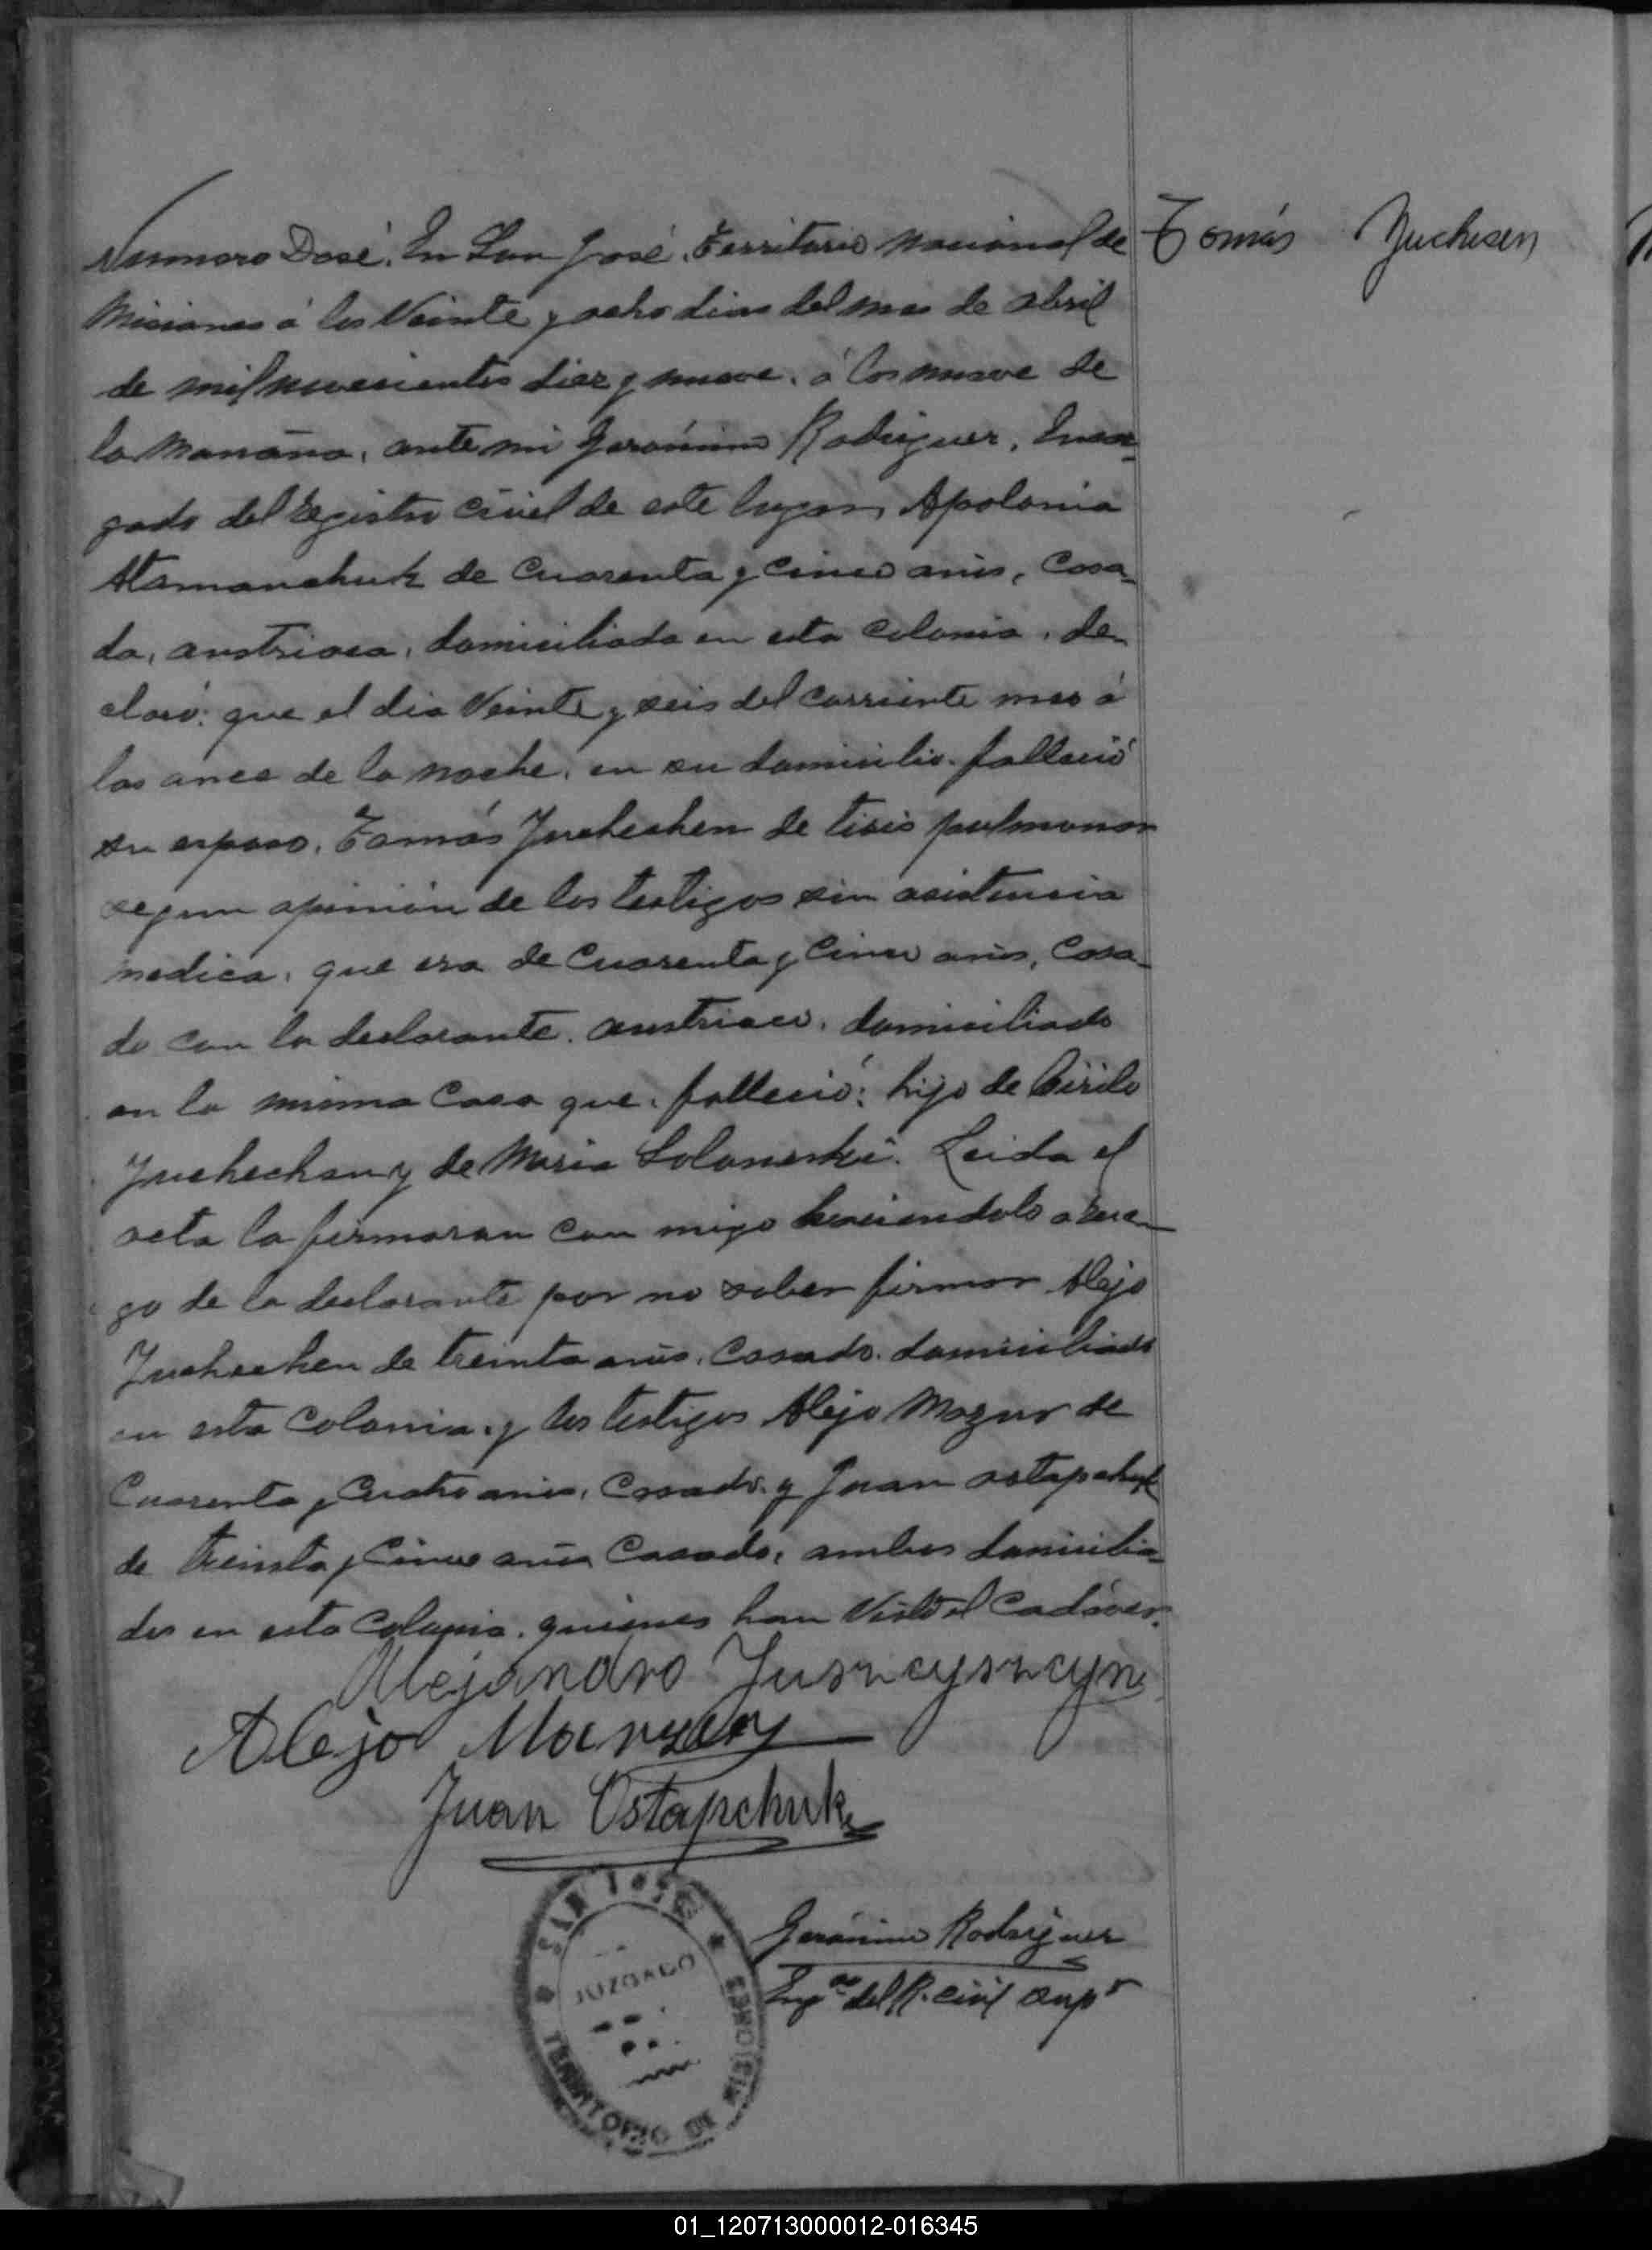 Nummero Dosé. En San José, Territorio nacional de
Tomás Yuchesen
Misiones á los Veinte y ocho dias del mes de abril
de mil novecientos diez y nueve, á las nueve de
la mañana, ante mi Gerónimo Rodriguez, Encar-
gado del Registro Civil de este lugar, Apolonia
Atamanchuk de Cuarenta y Cinco años, Casa-
da, austriaca, domiciliada en esta Colonia, de-
claró: que el dia Veinte y seis del Corriente mes á
las once de la noche, en su domicilio falleció
su esposo, Tomás Juchechen de tisis pulmonar
segun opinión de los testigos sin asistencia
medica, que era de Cuarenta y Cinco años, Casa-
do con la declarante, austriaco, domiciliado
en la misma Casa que falleció; hijo de Cirilo
Juchechen y de Maria Solonenski. Leida el
acta la firmaron con migo haciendolo a rue-
go de la declarante por no saber firmar Alejo
Juchechen de treinta años, Casado, domiciliado
en esta Colonia, y los testigos Alejo Mazur de
Cuarenta y Cuatro años, Casado y Juan Ostapchuk
de treinta y Cinco años Casado, ambos domicilia-
dos en esta Colonia, quienes han Visto el Cadáver.
Alejandro Juszcyszcyn
Alejo Mazur
Juan Ostapchuk
Gerónimo Rodriguez
Engdo del R. Civil Supr
SAN JOSE
JUZGADO
TERRITORIO DE MISIONES
01_120713000012-016345